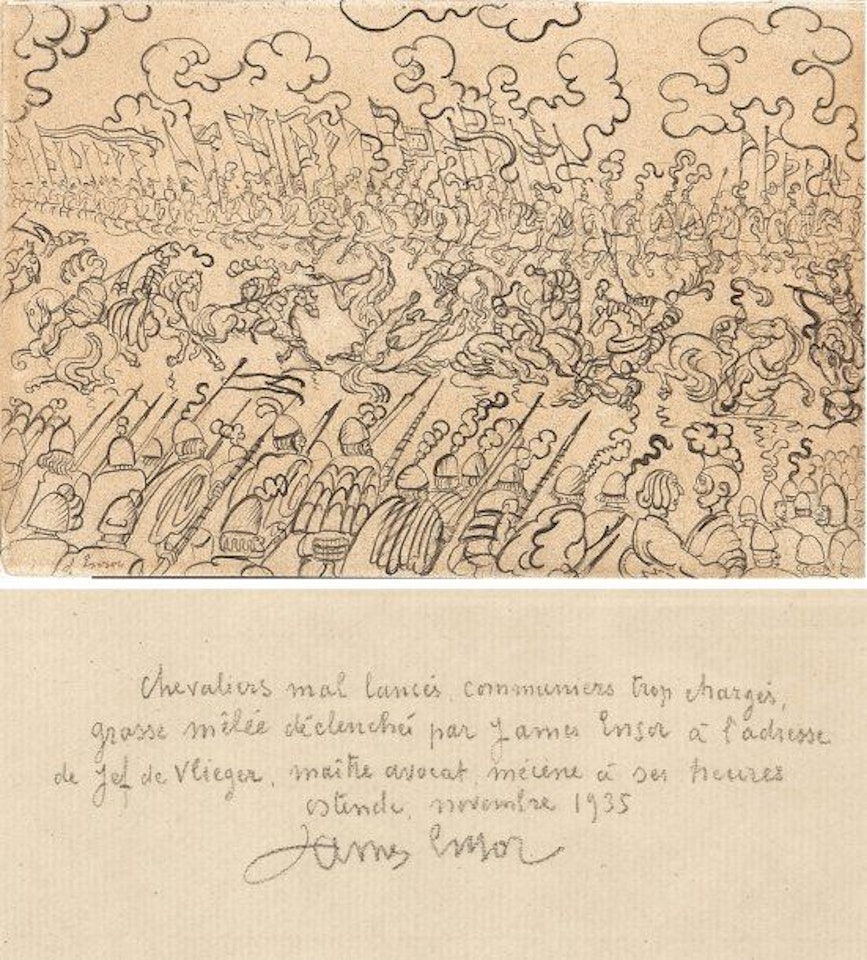 J Ensor
chevaliers mal lancés, communiers trop chargés,
grosse mêlée déclenchée par James Ensor à l'adresse
de Jef de Vlieger, maître avocat, mécène à ses heures
ostende, novembre 1935
James Ensor